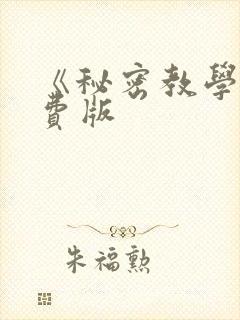 《秘密教學
費版
朱福勲